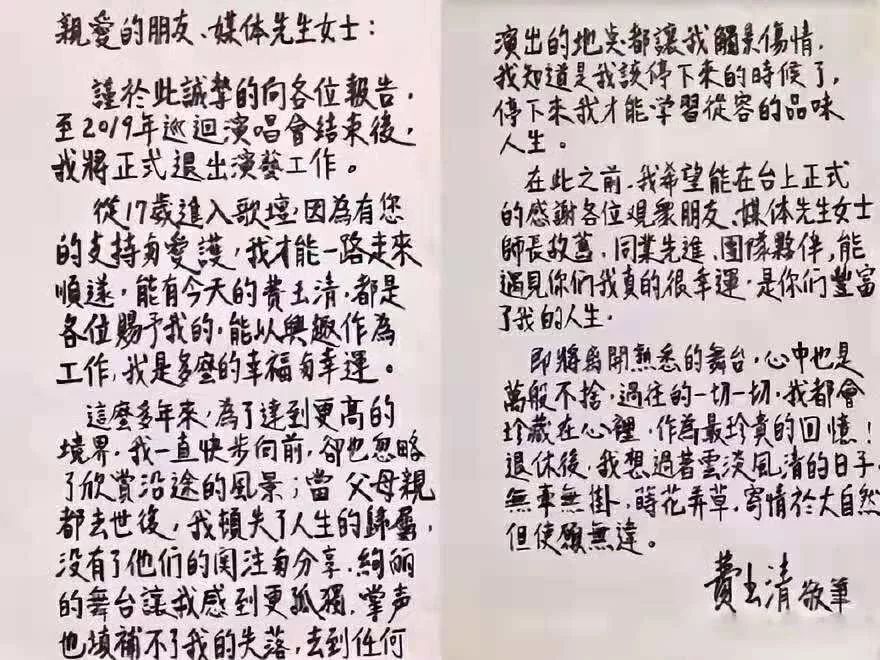 親愛的朋友、媒体先生女士：
謹於此誠摯的向各位報告，
至2019年巡迴演唱會結束後，
我將正式退出演藝工作。
從17歲進入歌壇，因為有您
的支持與愛護，我才能一路走來
順遂，能有今天的費玉清，都是
各位賜予我的，能以興趣作為
工作，我是多麼的幸福與幸運。
這麼多年來，為了達到更高的
境界，我一直快步向前，卻也忽略
了欣賞沿途的風景；當 父母親
都去世後，我頓失了人生的歸屬，
沒有了他們的関注與分享，絢麗
的舞台讓我感到更孤獨，掌声
也填補不了我的失落，去到任何
演出的地点都讓我觸景傷情，
我知道是我該停下來的時候了，
停下來我才能学習從容的品味
人生。
在此之前，我希望能在台上正式
的感謝各位观眾朋友、媒体先生女士
師長故舊、同業先進、團隊夥伴，能
遇見你們我真的很幸運，是你們豐富
了我的人生，
即將离開熟悉的舞台，心中也是
萬般不捨，過往的一切一切，我都會
珍藏在心裡，作為最珍貴的回憶！
退休後，我想過著雲淡風清的日子，
無牽無掛，蒔花弄草，寄情於大自然
但使願無違。
費玉清 敬筆